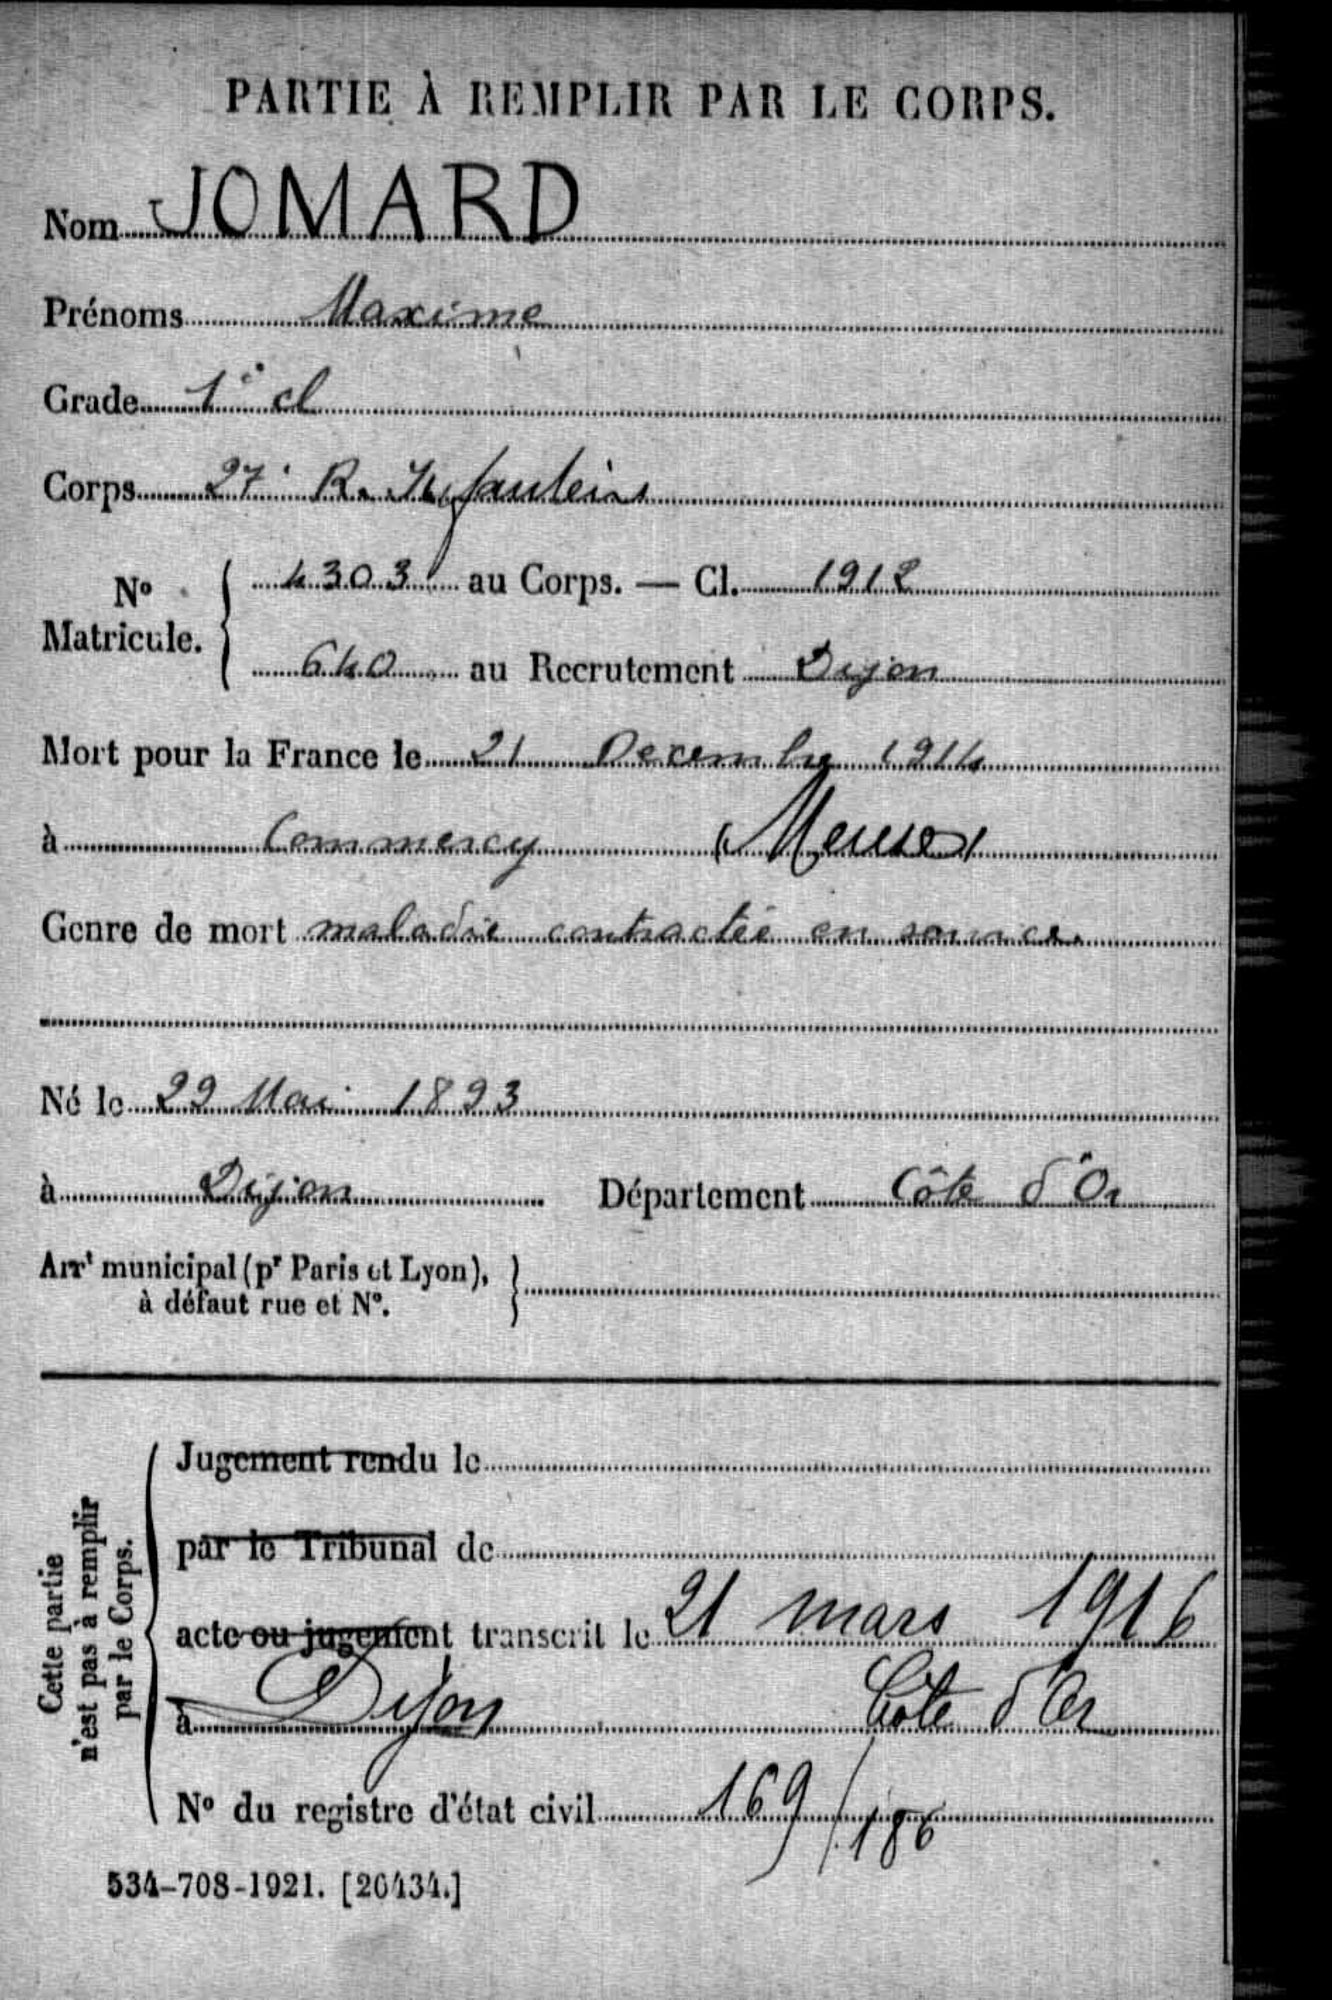 PARTIE À REMPLIR PAR LE CORPS.
Nom JOMARD
Prénoms Maxime
Grade 1e cl
Corps 27e R. Infanterie
No Matricule. 4303 au Corps. — Cl. 1912
640 au Recrutement Dijon
Mort pour la France le 21 Decembre 1914
à Commercy (Meuse)
Genre de mort maladie contractée en service.
Né le 29 Mai 1893
à Dijon Département Côte d'Or
Arrt municipal (pr Paris et Lyon),
à défaut rue et No.
Cette partie
n'est pas à remplir
par le Corps.
Jugement rendu le
par le Tribunal de
acte ou jugement transcrit le 21 mars 1916
à Dijon Côte d'Or
No du registre d'état civil 169/186
534-708-1921. [26434.]